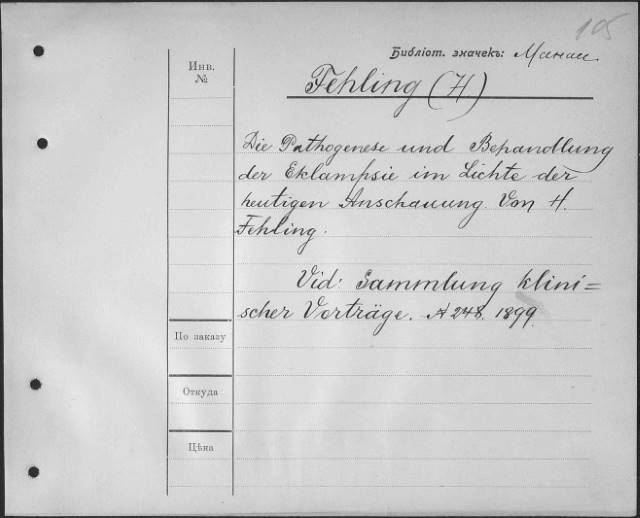 105
Библіот. значекъ:
Инв.
№
Fehling (H)
Die Pathogenese und Behandlung
der Eklampsie im Lichte der
heutigen Anschauung. Von H.
Fehling.
Vid: Sammlung klini=
scher Vorträge. № 248. 1899.
По заказу
Откуда
Цѣна